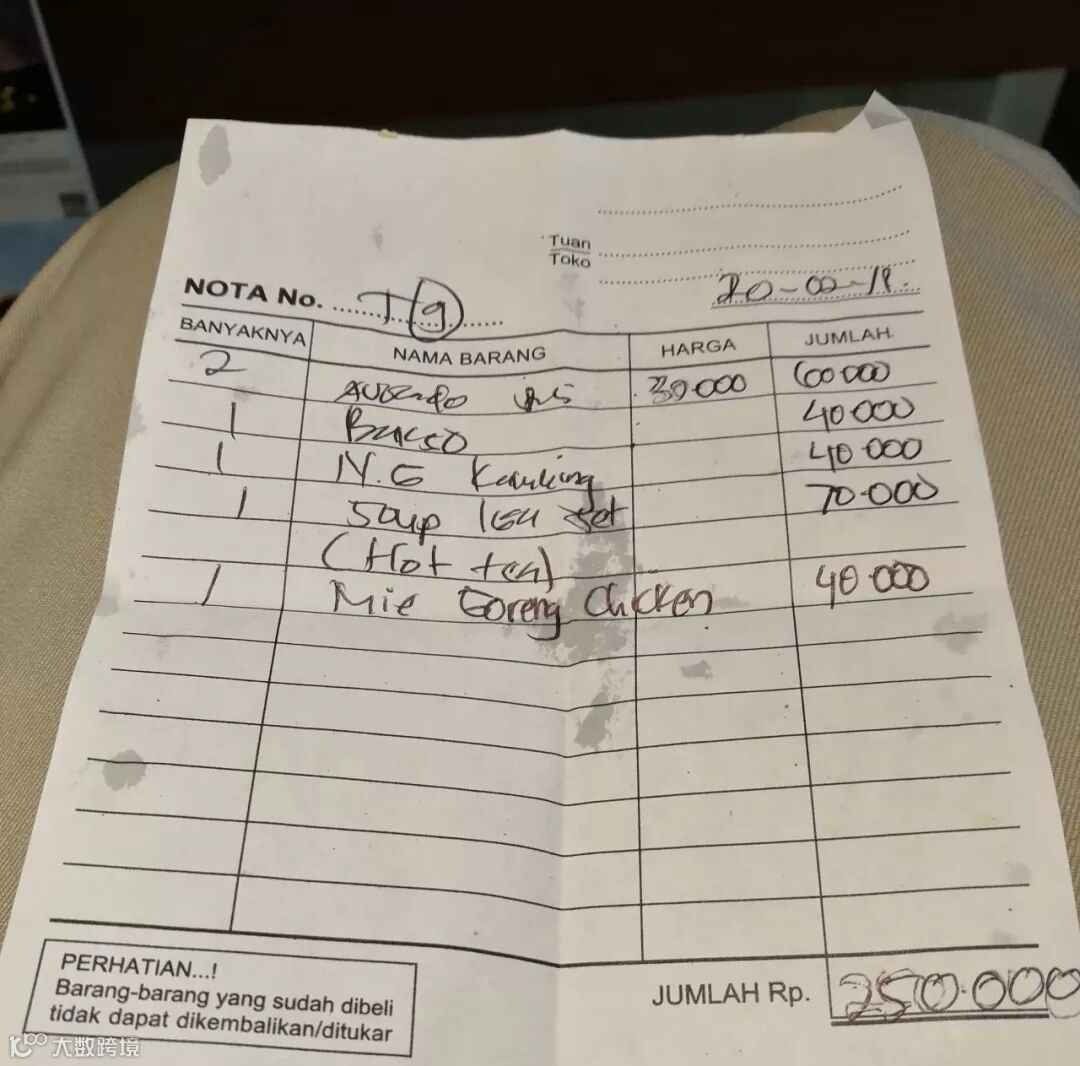 Tuan
Toko
NOTA No. T/9
20-02-18.
BANYAKNYA NAMA BARANG HARGA JUMLAH
2 30.000 60000
1 Bakso 40.000
1 N.G Kambing 40.000
1 Soup set 70.000
(Hot tea)
1 Mie Goreng Chicken 40.000
PERHATIAN...!
Barang-barang yang sudah dibeli
tidak dapat dikembalikan/ditukar
JUMLAH Rp. 250.000
大数跨境